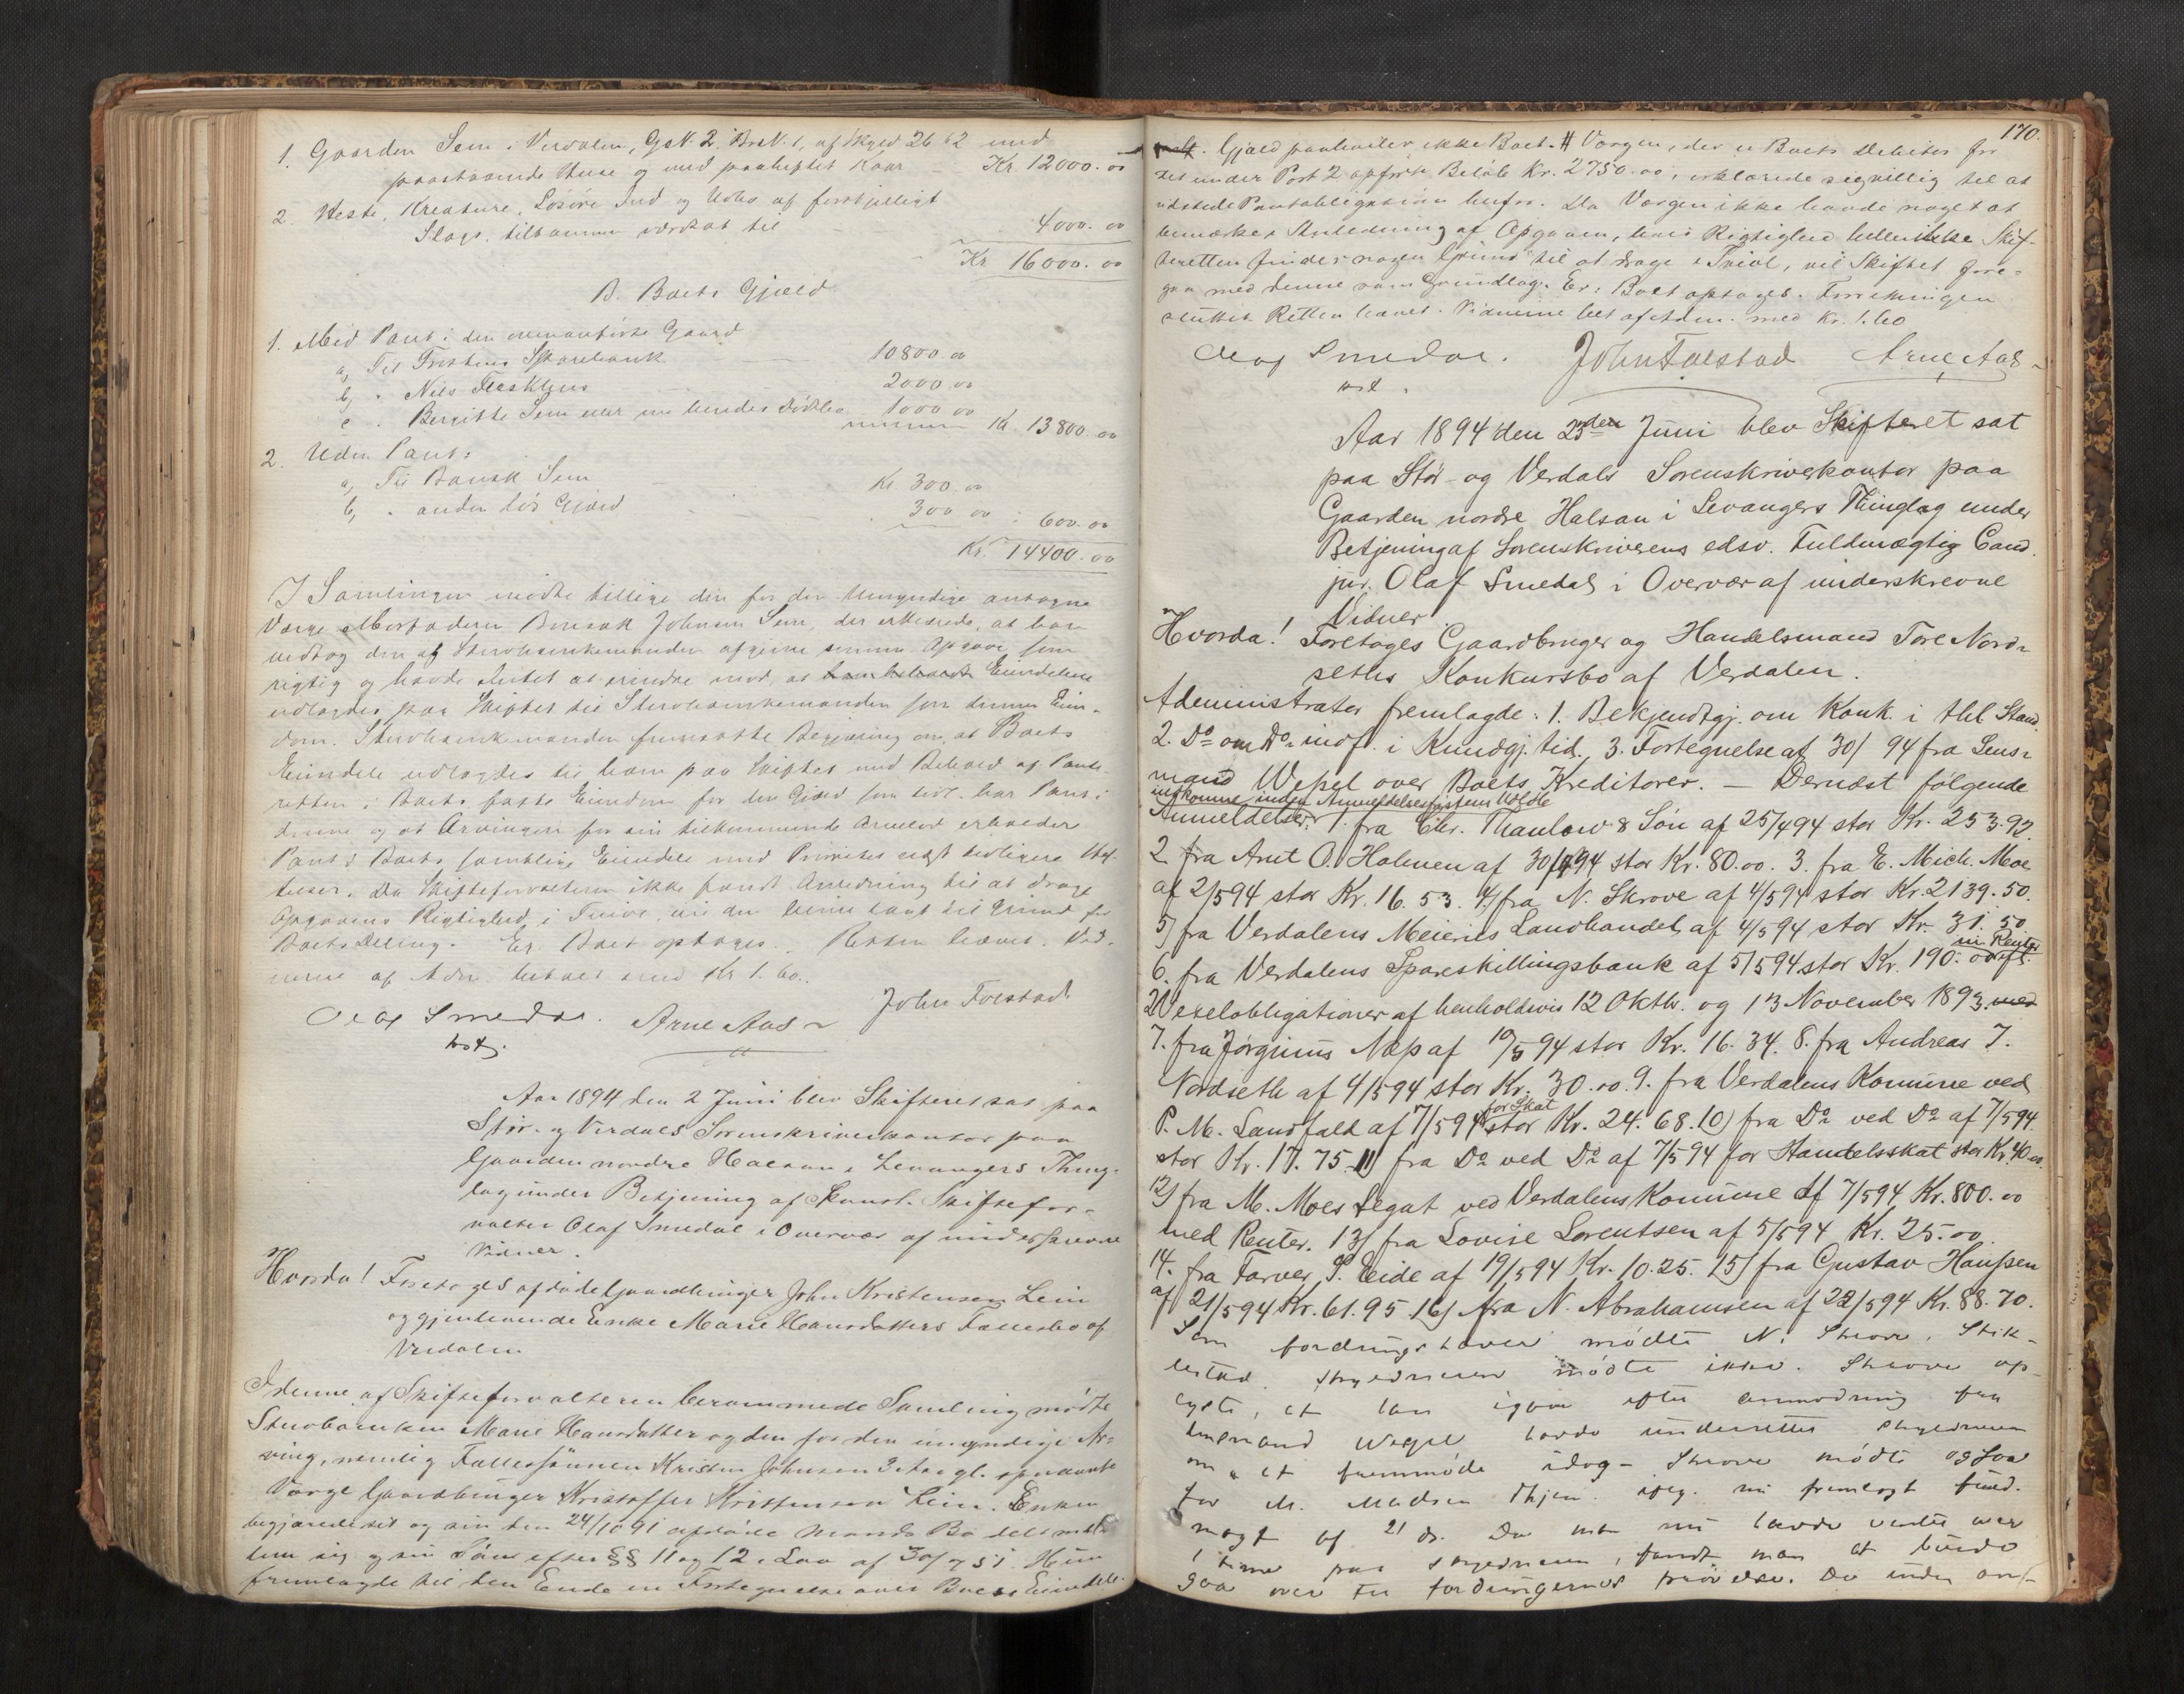 1. Gaarden Sem i Verdalen, GsN. 2, BrsN. 1, af Skyld 26 62 med
paastaaende Huse og med paaheftet Kaar – Kr 12000.00
2. Heste, Kreature, Løsøre Ind og Udbo af forskjelligt
Slags, tilsammen værdsat til – 4000.00
Kr 16000.00
B. Boets Gjæld
1. Med Pant i den ovenanførte Gaard
a, Til Frostens Sparebank 10800.00
b, " Nils Flesklyns 2000.00
c " Bergitte Sem eller nu hendes Dødsbo 1000 00 Kr. 13800.00
2. Uden Pant:
a, Til Bonsak Sem Kr. 300.00
b, " anden løs Gjæld 300 00 : 600.00
Kr. 14400.00
I Samlingen mødte tillige den for den Umyndige antagne
Værge Morfaderen Bonsak Johnsen Sem, der erklærede, at han
vedtog den af Stervboenkemanden afgivne Opgave som
rigtig og havde intet at erindre mod, at Eiendelene
udlagdes paa Skiftet til Stervboenkemanden som dennes Eien-
dom. Stervboenkemanden fremsatte Begjæring om, at Boets
Eiendele udlagdes til ham paa Skiftet med Beheld af Pante-
retten i Boets faste Eiendom for den Gjæld som har Pant i
denne og at Arvingen for sin tilkommende Arvelod erholder
Pant i Boets samtlige Eiendele med Prioritet næst tidligere Hef-
telser. Da Skifteforvalteren ikke fandt Anledning til at drage
Opgavens Rigtighed i Tvivl, vil den blive lagt til Grund for
Boets Deling. Er. Boet optages. Retten hævet. Vid-
nerne af Adm. betalt med Kr 1.60.
Olaf Smedal. Arne Aas John Folstad
kst.
Aar 1894 den 2 Juni blev Skifteret sat paa
Stør- og Verdals Sorenskriverkontor paa
Gaarden nordre Halsan i Levangers Thing-
lag under Betjening af Konst. Skiftefor-
valter Olaf Smedal i Overvær af underskrevne
Vidner.
Hvorda! Foretoges afdøde Gaardbruger John Kristensen Lein
og gjenlevende Enke Marie Hansdatters Fællesbo af
Verdalen
I denne af Skifteforvalteren berammede Samling mødte
Stervboenken Marie Hansdatter og den for den umyndige Ar-
ving, nemlig Fællessønnen Kristen Johnsen 3 Aar gl. opnævnte
Værge Gaardbruger Kristoffer Kristensen Lein. Enken
begjærede sit og sin den 24/10 91 afdøde Mands Bo delt mellem
hem sig og sin Søn efter §§ 11 og 12 i Lov af 30/7 51. Hun
fremlagde til den Ende en Fortegnelse over Boets Eiendele
170.
Gjæld paahviler ikke Boet. # Værgen, der er Boets Debitor for
det under Post 2 opførte Beløb Kr. 2750.00, erklærede sig villig til at
udstede Pantobligation herfor. Da Værgen ikke havde noget at
bemærke i Anledning af Opgaven, hvis Rigtighed heller ikke Skif-
teretten finder nogen Grund til at drage i Tvivl, vil Skiftet fore-
gaa med denne som Grundlag. Er: Boet optaget. Forretningen
sluttet Retten hævet. Vidnerne bet af Adm. med Kr. 1.60
Olaf Smedal. John Folstad Arne Aas
kst.
Aar 1894 den 23den Juni blev Skifteret sat
paa Stør- og Verdals Sorenskriverkontor paa
Gaarden nordre Halsan i Levangers Thinglag under
Betjening af Sorenskriverens edsv. Fuldmægtig Cand.
jur. Olaf Smedal i Overvær af underskrevne
Vidner.
Hvorda! Foretoges Gaardbruger og Handelsmand Tore Nord-
seths Konkursbo af Verdalen.
Administrator fremlagde: 1. Bekjendtgj. om Konk. i thl. Stand.
2. Do om Do indf. i Kundgj. tid., 3. Fortegnelse af 30/ 94 fra Lens-
mand Wessel over Boets Kreditorer. – Dernæst følgende
indkomne inden Anmeldelsesfristens Udløb
Anmeldelser: 1. fra Chr. Thaulow & Søn af 25/4 94 stor Kr. 253.92.
2. fra Arnt O. Holmen af 30/4 94 stor Kr. 80.00. 3. fra E. Mich. Moe
af 2/5 94 stor Kr. 16.53. 4) fra N. Skrove af 4/5 94 stor Kr. 2139.50.
5) fra Verdalens Meieries Landhandel af 4/5 94 stor Kr. 31.50
m. Renter
6. fra Verdalens Spareskillingsbank af 5/5 94 stor Kr. 190.00 ift.
2 Vexelobligationer af henholdsvis 12 Oktbr. og 13 November 1893. med
7. fra Jørginus Næss af 10/5 94 stor Kr. 16.34. 8. fra Andreas J.
Nordseth af 4/5 94 stor Kr. 30.00. 9. fra Verdalens Komune ved
for Skat
P. M. Landfald af 7/5 94 stor Kr. 24.68. 10) fra Do ved Do af 7/5 94
stor Kr. 17.75. 11) fra Do ved Do af 7/5 94 for Handelsskat stor Kr. 40.00
12) fra M. Moes Legat ved Verdalens Komune af 7/5 94 Kr. 800.00
med Renter. 13) fra Lovise Lorentsen af 5/5 94 Kr. 25.00.
14. fra Farver S. Eide af 19/5 94 Kr. 10.25. 15) fra Gustav Hanssen
af 21/5 94 Kr. 61.95. 16) fra N. Abrahamsen af 22/5 94 Kr. 88.70.
Som fordringshaver mødte N. Skrove, Stik-
lestad. Skyldneren mødte ikke. Skrove op-
lyste, at han igaar efter anmodning fra
lensmand Wessel havde underrettet skyldneren
om at fremmøde idag – Skrove mødte ogsaa
for M. Madsen Thjem iflg. nu fremlagt fuld-
magt af 21 ds. Da man nu havde ventet over
1 time paa skyldneren, fandt man at burde
gaa over til fordringernes prøvelse. Da inden an-